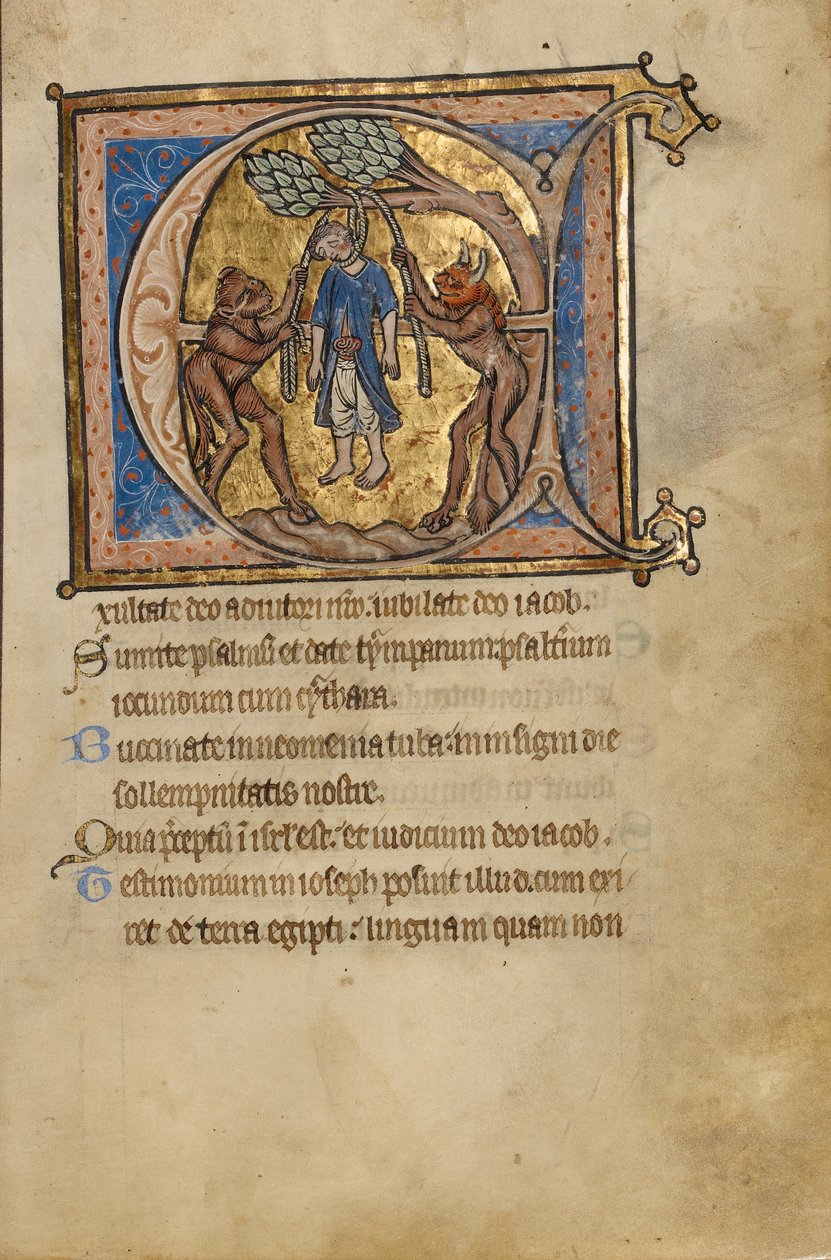 Exultate deo adiutori nr̄o. iubilate deo iacob.
Sumite psalmū et date tȳmpanum: psalt̄ium
iocundum cum cȳthara.
Buccinate in neomenia tuba: in insigni die
sollempnitatis nostre.
Quia p̄ceptū ī isrl̄ est: et iudicium deo iacob.
Testimonium in ioseph posuit illud. cum exi
ret de terra egipti: linguam quam non